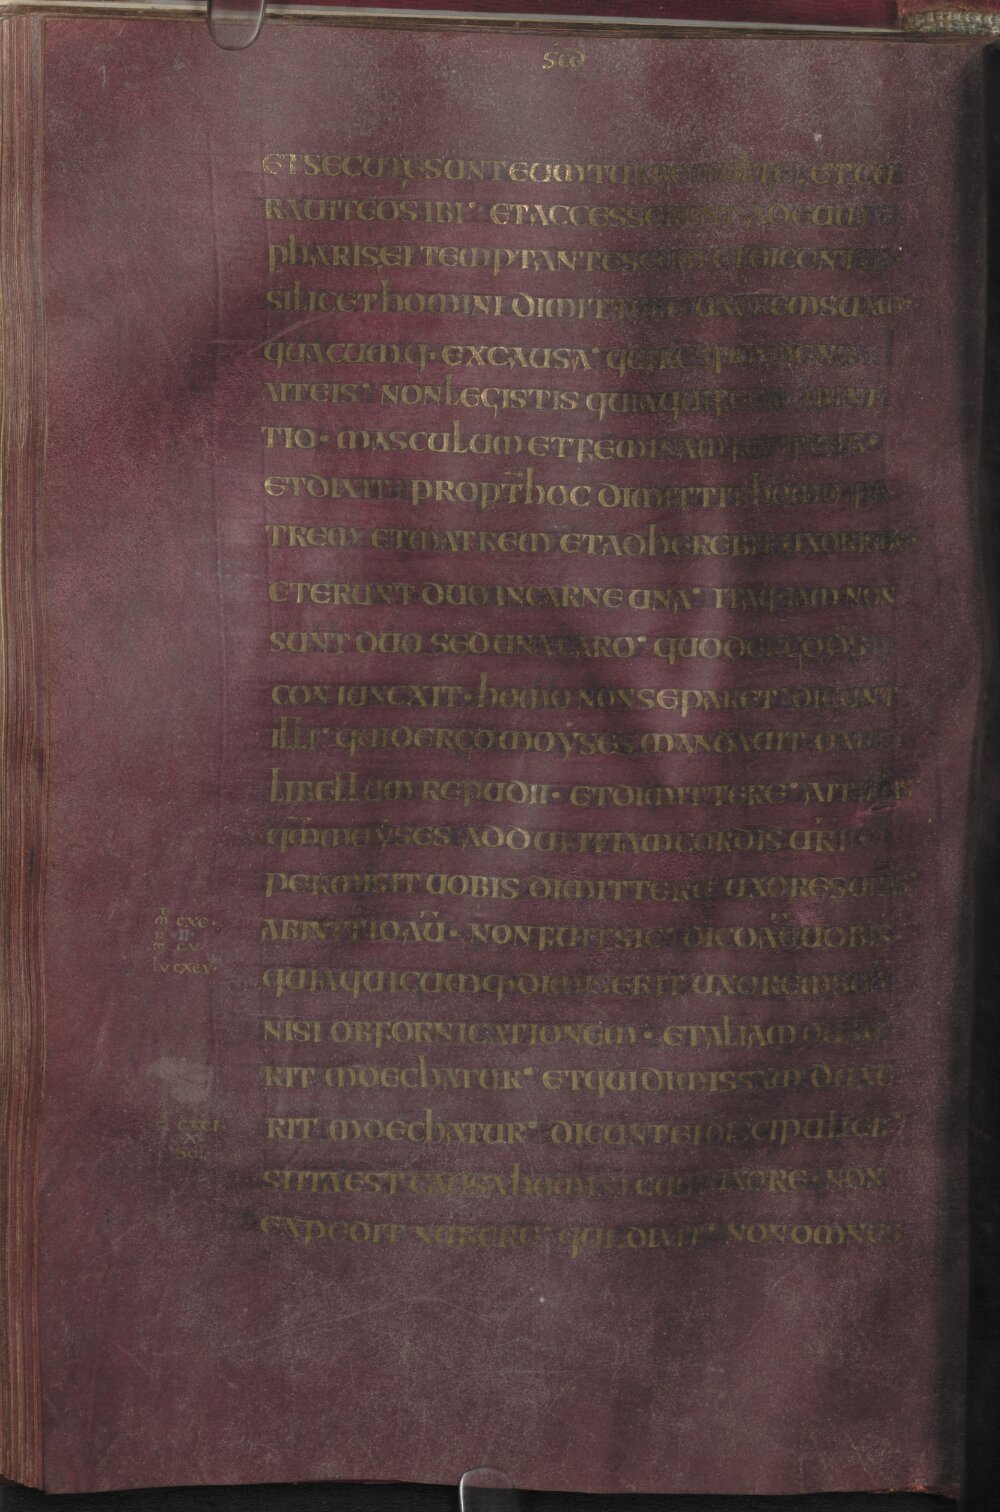 SCD̄
ETSECUTĘSUNTEUMTURBEMULTE·ETCU
RAUITEOS IBI· ETACCESSERUNT ADEUM
PHARISEI TEMPTANTES EUM ETDICENTES
SILICETHOMINI DIMITTERE UXOREMSUAM·
QUACUMQ· EXCAUSA· QUIRESPONDENS
AITEIS· NONLEGISTIS QUIAQUIFECIT ABINI
TIO· MASCULUM ETFEMINAMFECITEOS·
ETDIXIT· PROPT̄HOC DIMITTITHOMO PA
TREM· ETMATREM ETADHEREBIT UXORISUE·
ETERUNT DUO INCARNE UNA· ITAQ·IAM NON
SUNT DUO SED UNACARO· QUODERGOD̄S
CONIUNXIT· HOMO NONSEPARET· DICUNT
ILLI· QUIDERGOMOYSES MANDAUIT· DARE
LIBELLUM REPUDII· ETDIMITTERE· AITILLIS
QM̄MOYSES ADDURITIAMCORDIS UR̄I·
PERMISIT UOBIS DIMITTERE UXORESUR̄AS·
ABINITIOAŪ· NONFUITSIC· DICOAŪUOBIS·
QUIAQUICUMQ·DIMISERIT UXOREMSUĀ
NISI OBFORNICATIONEM· ETALIAM DUXE
RIT MOECHATUR· ETQUIDIMISSAM DUXE
RIT MOECHATUR· DICUNTEIDISCIPULIEI·
SIITAEST CAUSAHOMINI CUMUXORE· NON
EXPEDIT NUBERE· QUIDIXIT· NONOMNES